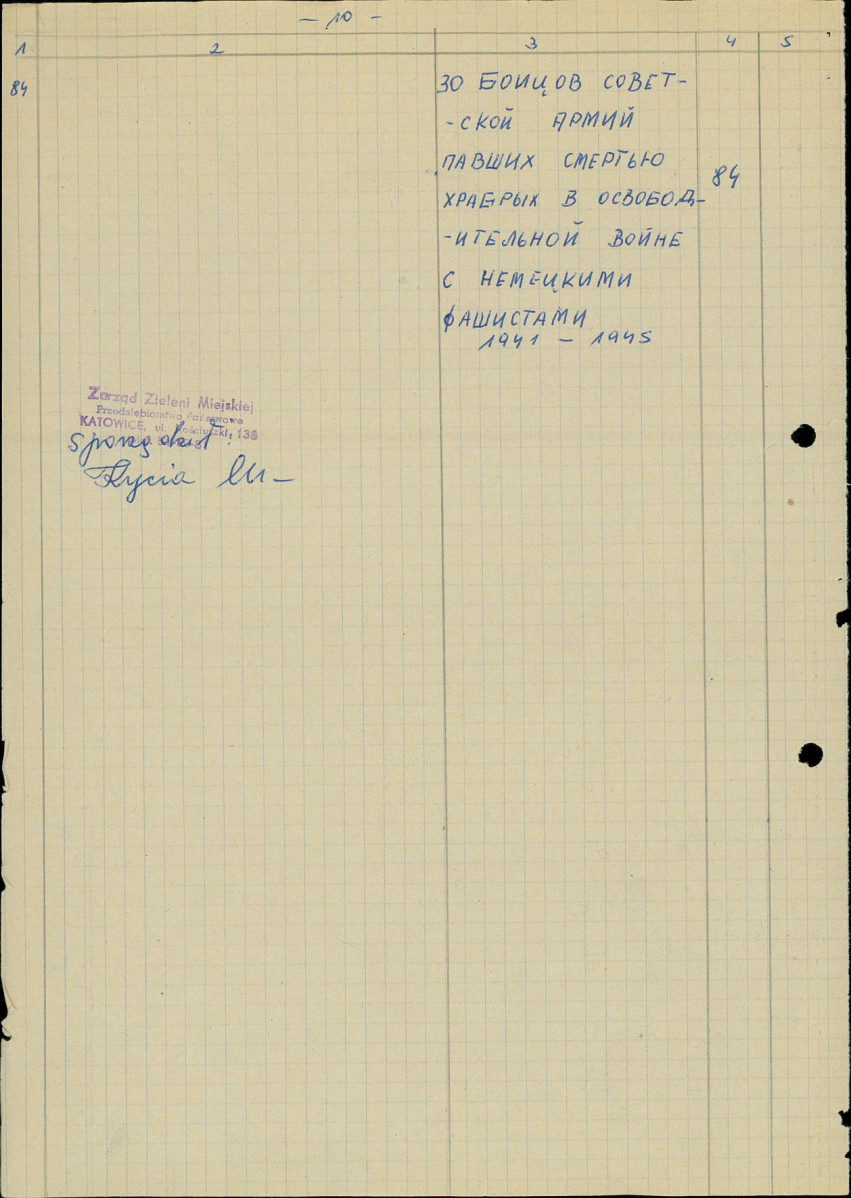 - 10 -
1 2 3 4 5
84
30 БОИЦОВ СОВЕТ-
-СКОЙ АРМИЙ
ПАВШИХ СМЕРТЬЮ
84
ХРАБРЫХ В ОСВОБОД-
-ИТЕЛЬНОЙ ВОЙНЕ
С НЕМЕЦКИМИ
ФАШИСТАМИ
1941 - 1945
Zarząd Zieleni Miejskiej
Przedsiębiorstwo Państwowe
KATOWICE, ul. Kościuszki 138
Kycia